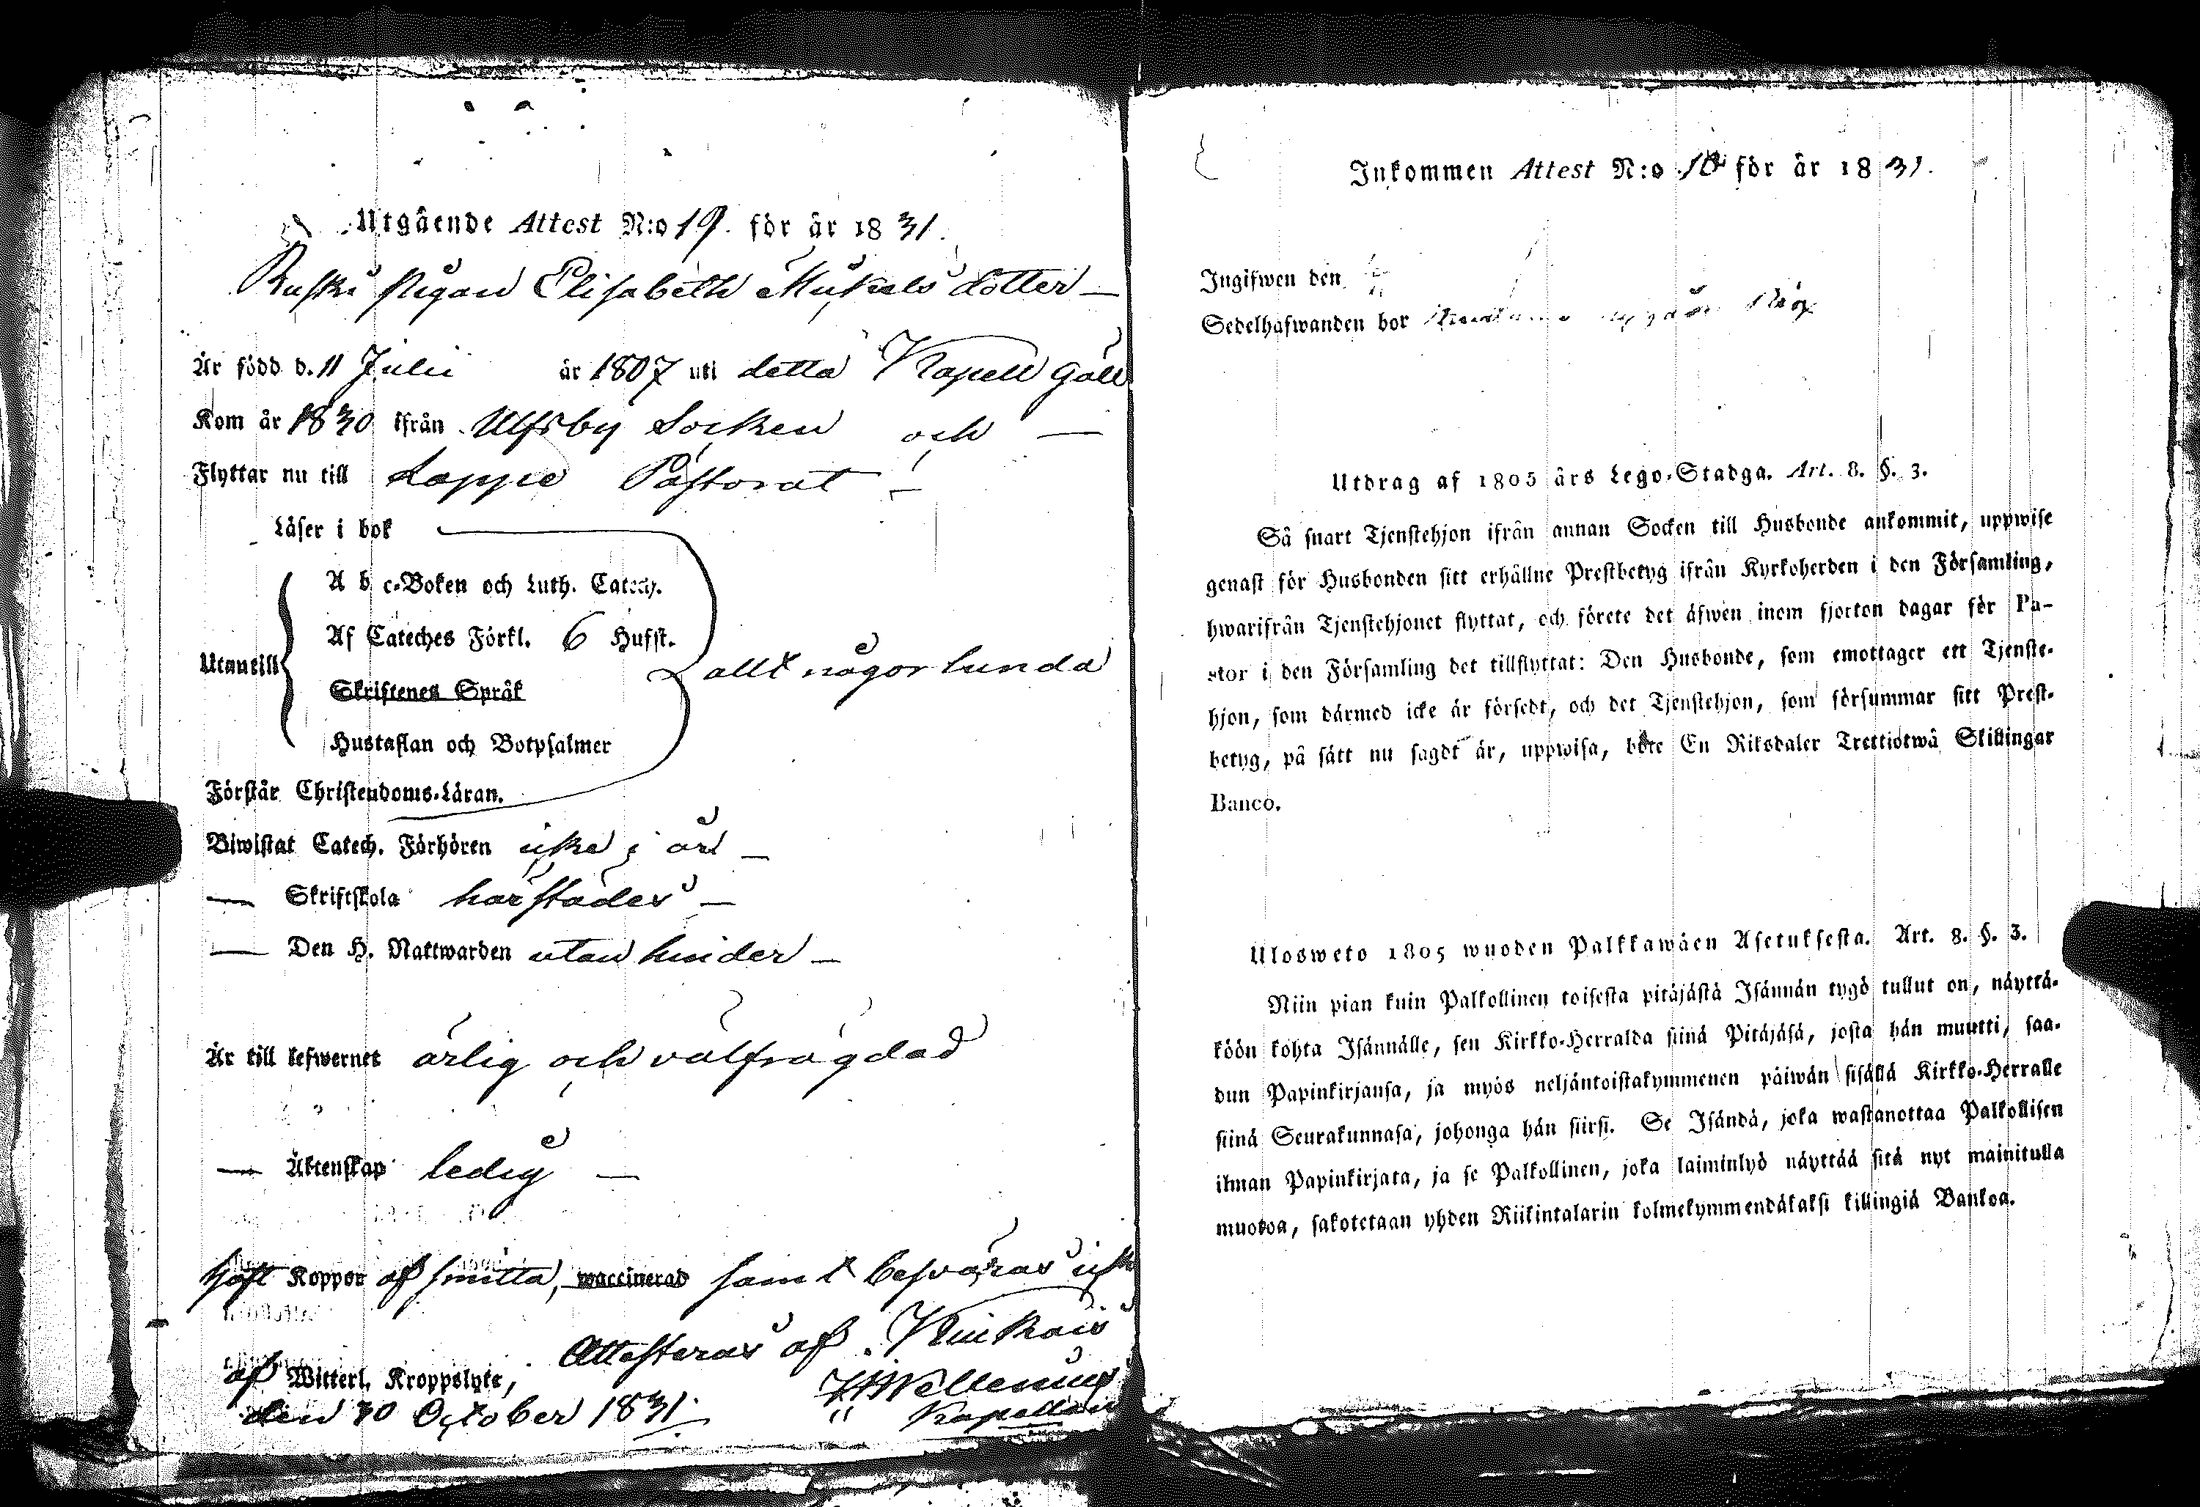 Utgående Attest N:o 19. för år 1831.
Ruski pigan Elisabeth Mickels dotter —
Är född d. 11 Julii år 1807 uti detta Kapell gäll
Kom år 1830 ifrån Ulfsby Socken och —
Flyttar nu till Lappo Pastorat —
Läser i bok
A b c-Boken och Luth. Catech.
Af Cateches Förkl. 6 Hufst.
Utantill allt någorlunda
Skriftenes Språk
Hustaflan och Botpsalmer
Förstår Christendoms-Läran.
Biwistat Catech. Förhören icke i år —
— Skriftskola härstädes —
— Den H. Nattwarden utan hinder —
Är till lefwernet ärlig och välfrägdad
— Äktenskap ledig —
haft Koppor af smitta, waccinerad samt besväras icke
af Witterl. Kroppslyte, Attesteras af Kiukais
den 30 October 1831. Wellenius
Kapellan
Inkommen Attest N:o 10 för år 1831.
Ingifwen den
Sedelhafwanden bor
Utdrag af 1805 års Lego-Stadga. Art. 8. §. 3.
Så snart Tjenstehjon ifrån annan Socken till Husbonde ankommit, uppwise
genast för Husbonden sitt erhållne Prestbetyg ifrån Kyrkoherden i den Församling,
hwarifrån Tjenstehjonet flyttat, och förete det äfwen inom fjorton dagar för Pa-
stor i den Församling det tillflyttat: Den Husbonde, som emottager ett Tjenste-
hjon, som därmed icke är försedt, och det Tjenstehjon, som försummar sitt Prest-
betyg, på sätt nu sagdt är, uppwisa, böte En Riksdaler Trettiotwå Skillingar
Banco.
Ulosweto 1805 wuoden Palkkawäen Asetuksesta. Art. 8. §. 3.
Niin pian kuin Palkollinen toisesta pitäjästä Isännän tygö tullut on, näyttä-
köön kohta Isännälle, sen Kirkko-Herralda siinä Pitäjäsä, josta hän muutti, saa-
dun Papinkirjansa, ja myös neljäntoistakymmenen päiwän sisällä Kirkko-Herralle
siinä Seurakunnasa, johonga hän siirsi. Se Isändä, joka wastanottaa Palkollisen
ilman Papinkirjata, ja se Palkollinen, joka laiminlyö näyttää sitä nyt mainitulla
muotoa, sakotetaan yhden Riikintalarin kolmekymmendäkaksi killingiä Bankoa.